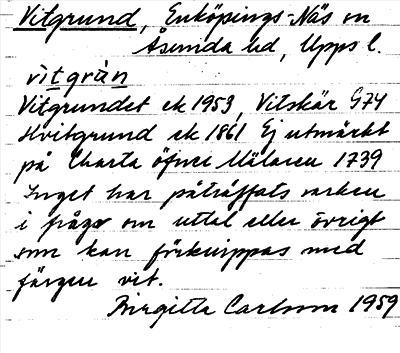 Vitgrund, Enköpings-Näs sn
Åsunda hd, Upps l.
vi̇tgràn
Vitgrundet ek 1953, Vitskär G74
Hvitgrund ek 1861 Ej utmärkt
på Charta öfver Mälaren 1739
Inget har påträffats varken
i fråga om uttal eller övrigt
som kan förknippas med
färgen vit.
Birgitta Carlsson 1959